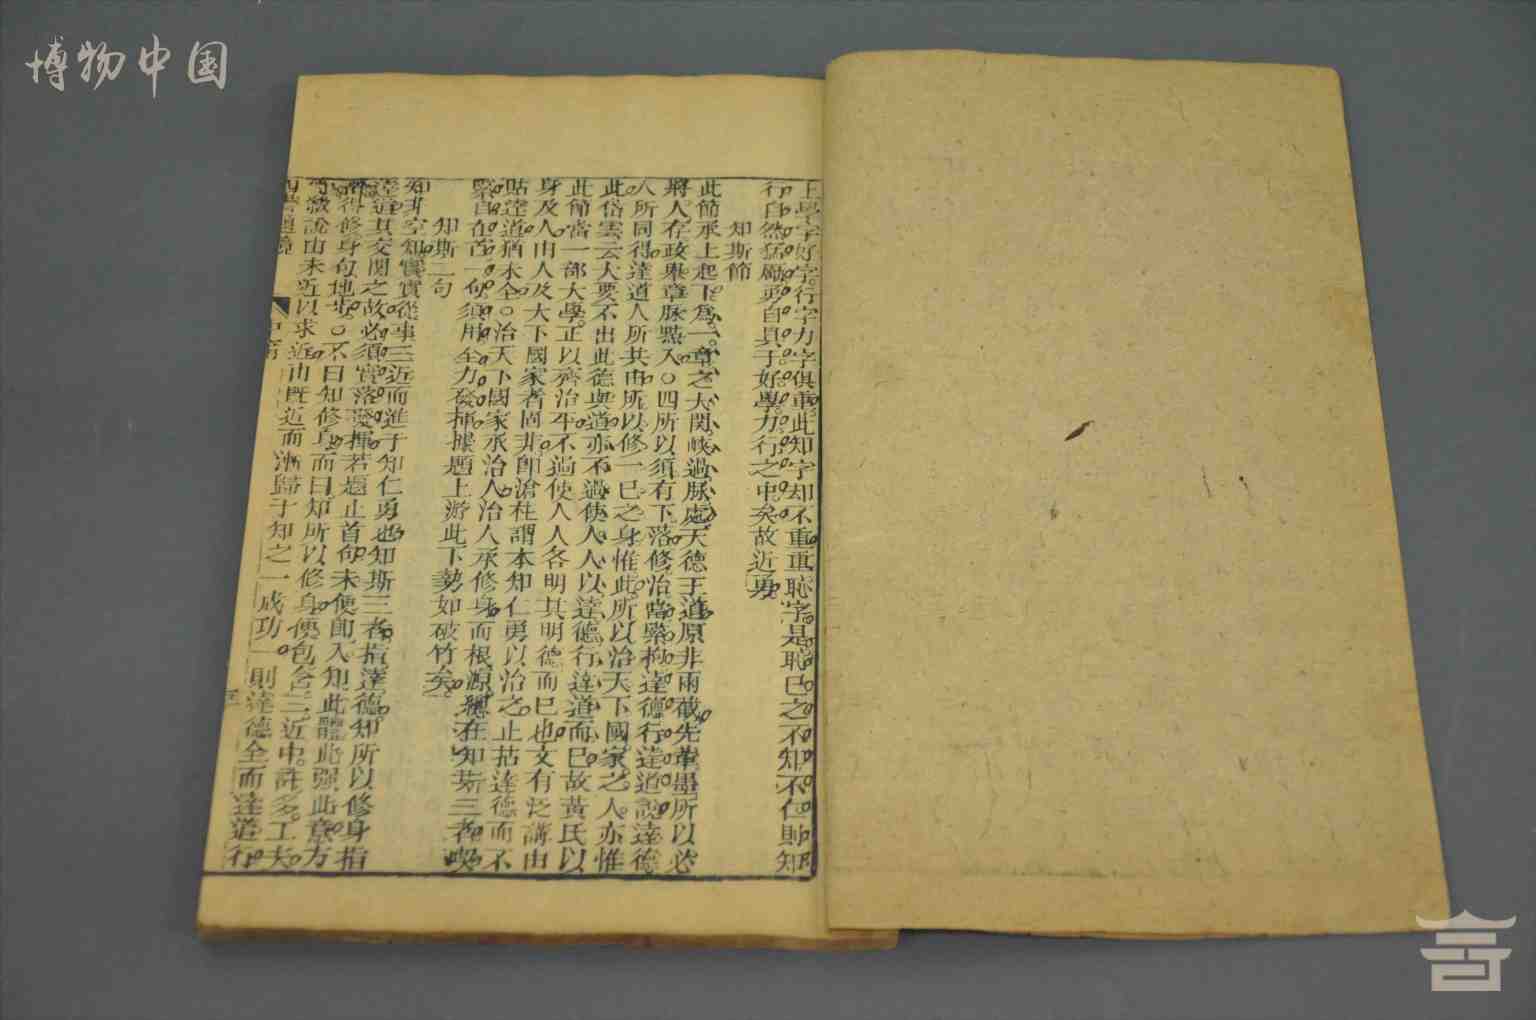 博物中国
上學字好字行字力字俱重此知字却不重重恥字是恥已之不知不仁則知
行自然猛勵勇自具于好學力行之中矣故近勇
知斯節
此節承上起下爲一章之大關峽過脉處天德王道原非兩截先輩墨所以必
將人存政舉章脉點入○四所以須有下落修治當緊拘達德行達道說達德
人所同得達道人所共由所以修一已之身惟此所以治天下國家之人亦惟
此岱雲云大要不出此德與道亦不過使人人以達德行達道而已故黃氏以
此節當一部大學正以齊治平不過使人人各明其明德而已也文有泛講由
身及人由人及天下國家者固非卽滄柱謂本知仁勇以治之止拈達德而不
貼達道猶未全○治天下國家承治人治人承修身而根源總在知斯三者喫
緊自在首一句須用全力發揮據題上游此下勢如破竹矣
知斯二句
知非空知實實從事三近而進于知仁勇也知斯三者指達德知所以修身指
達道其交關之故必須實落發揮若題止首句未便卽入知此體此强此意方
得修身句地步○不曰知修身而曰知所以修身便包含三近中許多工夫
說由未近以求近由既近而漸歸于知之一成功一則達德全而達道行
中庸